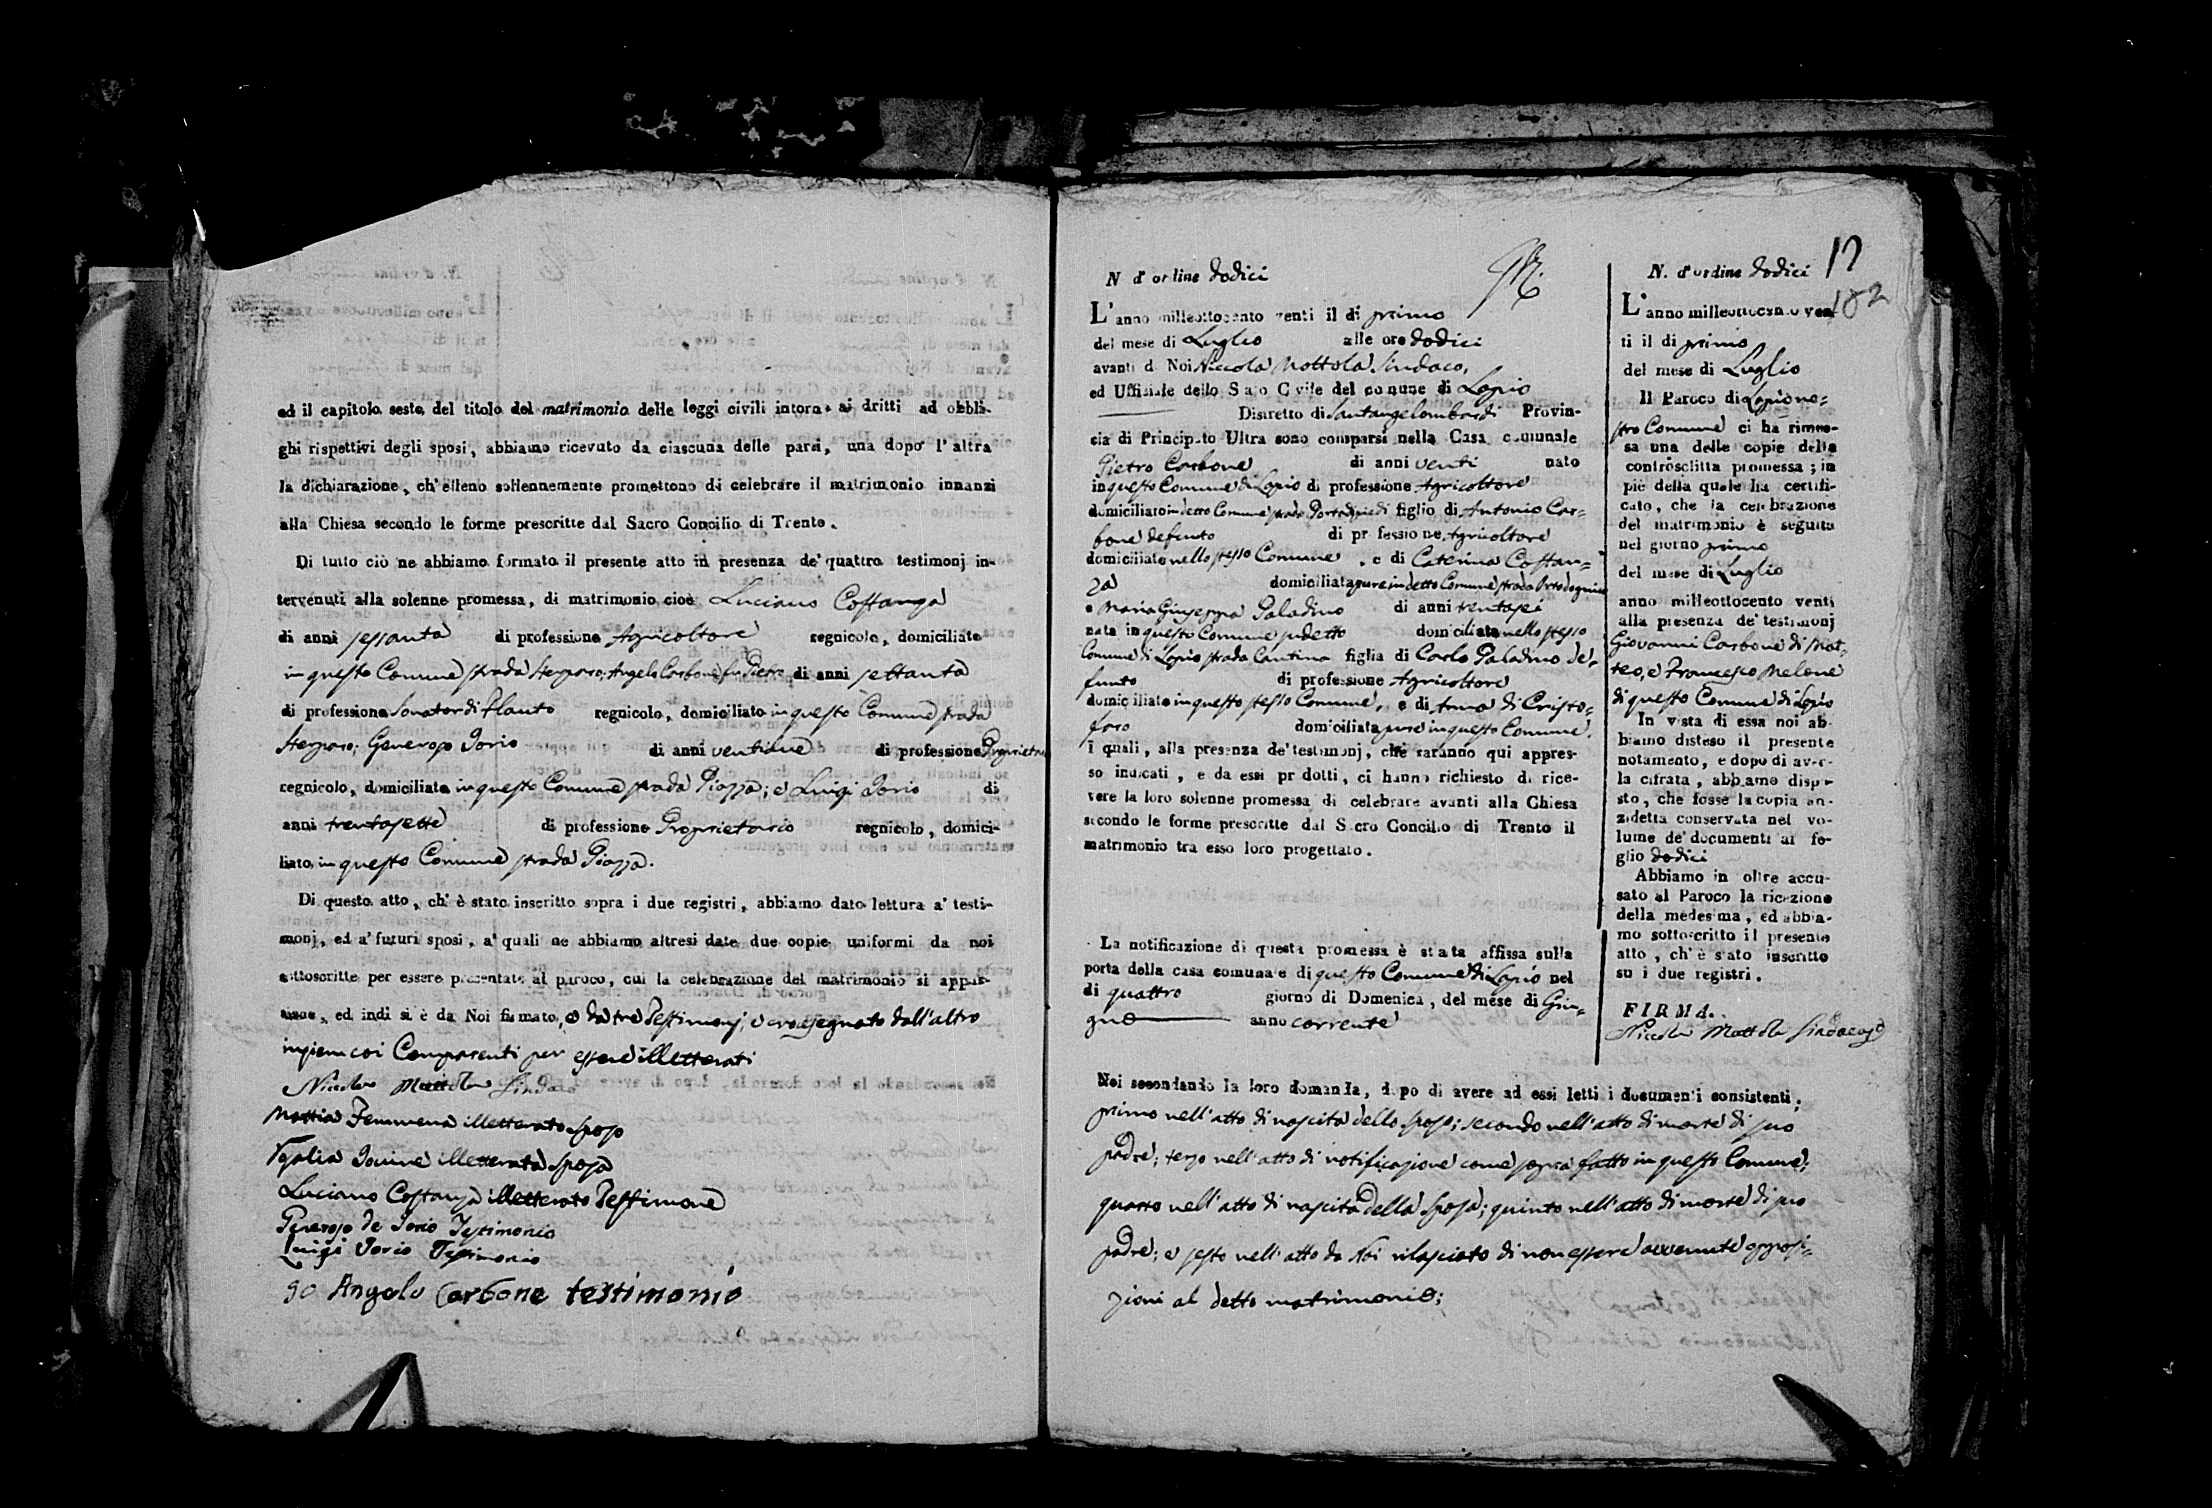 ed il capitolo sesto del titolo del matrimonio delle leggi civili intorno ai dritti ad obbli-
ghi rispettivi degli sposi, abbiamo ricevuto da ciascuna delle parti, una dopo l'altra
la dichiarazione, ch'elleno sollennemente promettono di celebrare il matrimonio innanzi
alla Chiesa secondo le forme prescritte dal Sacro Concilio di Trento.
Di tutto ciò ne abbiamo formato il presente atto in presenza de' quattro testimonj in-
tervenuti alla solenne promessa, di matrimonio cioè Luciano Costanza
di anni sessanta di professione Agricoltore regnicolo, domiciliato
in questo Comune strada Angelo Carbone fu Pietro di anni settanta
di professione Sonator di flauto regnicolo, domiciliato in questo Comune strada
Generoso Iorio di anni ventinove di professione Proprietario
regnicolo, domiciliato in questo Comune strada Piazza; e Luigi Iorio di
anni trentasette di professione Proprietario regnicolo, domici-
liato in questo Comune strada Piazza.
Di questo atto, ch'è stato inscritto sopra i due registri, abbiamo dato lettura a' testi-
monj, ed a' futuri sposi, a' quali ne abbiamo altresi date due copie uniformi da noi
sottoscritte per essere presentate al paroco, cui la celebrazione del matrimonio si appar-
tiene, ed indi si è da Noi firmato, e da tre Testimonj, e crocesegnato dall'altro
insieme coi Comparenti per essere illetterati
Nicola Mottola Sindaco
Mattia Femmena illetterato Sposo
illetterata Sposa
Luciano Costanza illetterato Testimone
Generoso de Iorio Testimonio
Luigi Iorio Testimonio
Io Angelo Carbone testimonio
N d'ordine dodici
L'anno milleottocento venti il di primo
del mese di Luglio alle ore dodici
avanti di Noi Niccola Mottola Sindaco,
ed Uffiziale dello Stato Civile del comune di Lapio
Distretto di Santangelombardi Provin-
cia di Principato Ultra sono comparsi nella Casa comunale
Pietro Carbone di anni venti nato
in questo Comune di Lapio di professione Agricoltore
domiciliato in detto Comune strada figlio di Antonio Car-
bone defunto di professione Agricoltore
domiciliato nello stesso Comune, e di Caterina Costan-
za domiciliata pure in detto Comune strada
e Maria Giuseppa Paladino di anni trentasei
nata in questo Comune sudetto domiciliata nello stesso
Comune di Lapio strada Cantina figlia di Carlo Paladino de-
funto di professione Agricoltore
domiciliato in questo stesso Comune, e di Anna di Cristo-
foro domiciliata pure in questo Comune.
i quali, alla presenza de' testimonj, che saranno qui appres-
so indicati, e da essi prodotti, ci hanno richiesto di rice-
vere la loro solenne promessa di celebrare avanti alla Chiesa
secondo le forme prescritte dal Sacro Concilio di Trento il
matrimonio tra esso loro progettato.
La notificazione di questa promessa è stata affissa sulla
porta della casa comunale di questo Comune di Lapio nel
di quattro giorno di Domenica, del mese di Giu-
gno anno corrente
Noi secondando la loro domanda, dopo di avere ad essi letti i documenti consistenti;
primo nell'atto di nascita dello sposo; secondo nell'atto di morte di suo
padre; terzo nell'atto di notificazione come sopra fatto in questo Comune;
quarto nell'atto di nascita della sposa; quinto nell'atto di morte di suo
padre; e sesto nell'atto da Noi rilasciato di non essere avvenute opposi-
zioni al detto matrimonio;
12
182
N. d'ordine dodici
L'anno milleottocento ven-
ti il di primo
del mese di Luglio
Il Paroco di Lapio no-
stro Comune ci ha rimes-
sa una delle copie della
controscritta promessa; in
piè della quale ha certifi-
cato, che la celebrazione
del matrimonio è seguita
nel giorno primo
del mese di Luglio
anno milleottocento venti
alla presenza de' testimonj
Giovanni Carbone di Mat-
teo, e Francesco Melone
di questo Comune di Lapio
In vista di essa noi ab-
biamo disteso il presente
notamento, e dopo di aver-
la cifrata, abbiamo dispo-
sto, che fosse la copia an-
zidetta conservata nel vo-
lume de' documenti al fo-
glio dodici
Abbiamo in oltre accu-
sato al Paroco la ricezione
della medesima, ed abbia-
mo sottoscritto il presente
atto, ch'è stato inscritto
su i due registri.
FIRMA.
Niccola Mottola Sindaco